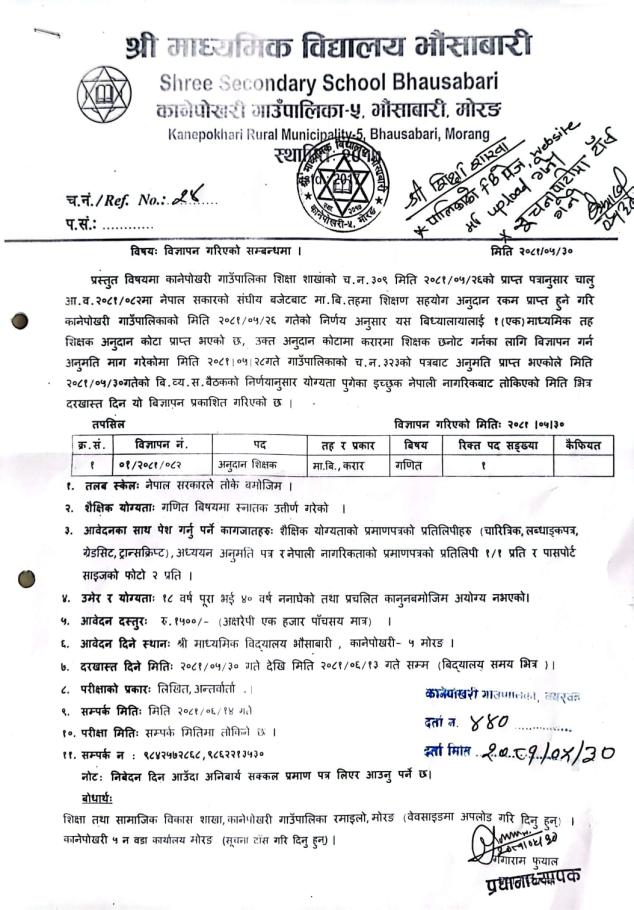 श्री माध्यमिक विद्यालय भौंसाबारी
Shree Secondary School Bhausabari
कानेपोखरी गाउँपालिका-५, भौंसाबारी, मोरङ
Kanepokhari Rural Municipality-5, Bhausabari, Morang
स्थापित: २०
श्री शिक्षा शाखा
* पालिकाको FB पेज, website
मा upload गर्नु
* सूचनापाटीमा टाँस
गर्न
च.नं./Ref. No.: २४
प.सं.: ............
विषयः विज्ञापन गरिएको सम्बन्धमा ।
मिति २०८१/०५/३०
प्रस्तुत विषयमा कानेपोखरी गाउँपालिका शिक्षा शाखाको च.न.३०९ मिति २०८१/०५/२६को प्राप्त पत्रानुसार चालु
आ.व.२०८१/०८२मा नेपाल सकारको संघीय बजेटबाट मा.बि.तहमा शिक्षण सहयोग अनुदान रकम प्राप्त हुने गरि
कानेपोखरी गाउँपालिकाको मिति २०८१/०५/२६ गतेको निर्णय अनुसार यस बिध्यालायालाई १(एक)माध्यमिक तह
शिक्षक अनुदान कोटा प्राप्त भएको छ, उक्त अनुदान कोटामा करारमा शिक्षक छनोट गर्नका लागि बिज्ञापन गर्न
अनुमति माग गरेकोमा मिति २०८१|०५|२८गते गाउँपालिकाको च.न.३२३को पत्रबाट अनुमति प्राप्त भएकोले मिति
२०८१/०५/३०गतेको बि.व्य.स.बैठकको निर्णयानुसार योग्यता पुगेका इच्छुक नेपाली नागरिकबाट तोकिएको मिति भित्र
दरखास्त दिन यो बिज्ञापन प्रकाशित गरिएको छ ।
तपसिल
विज्ञापन गरिएको मितिः २०८१।०५।३०
क्र.सं. विज्ञापन नं. पद तह र प्रकार बिषय रिक्त पद सङ्ख्या कैफियत
१ ०१/२०८१/०८२ अनुदान शिक्षक मा.बि., करार गणित १
१. तलब स्केलः नेपाल सरकारले तोके बमोजिम ।
२. शैक्षिक योग्यताः गणित बिषयमा स्नातक उत्तीर्ण गरेको ।
३. आवेदनका साथ पेश गर्नु पर्ने कागजातहरुः शैक्षिक योग्यताको प्रमाणपत्रको प्रतिलिपीहरु (चारित्रिक,लब्धाङ्कपत्र,
ग्रेडसिट,ट्रान्सक्रिप्ट),अध्ययन अनुमति पत्र र नेपाली नागरिकताको प्रमाणपत्रको प्रतिलिपी १/१ प्रति र पासपोर्ट
साइजको फोटो २ प्रति ।
४. उमेर र योग्यताः १८ वर्ष पूरा भई ४० वर्ष ननाघेको तथा प्रचलित कानुनबमोजिम अयोग्य नभएको।
५. आवेदन दस्तुरः रु.१५००/- (अक्षरेपी एक हजार पाँचसय मात्र) ।
६. आवेदन दिने स्थानः श्री माध्यमिक विद्यालय भौसाबारी , कानेपोखरी- ५ मोरङ ।
७. दरखास्त दिने मितिः २०८१/०५/३० गते देखि मिति २०८१/०६/१३ गते सम्म (बिद्यालय समय भित्र )।
८. परीक्षाको प्रकारः लिखित,अन्तर्वार्ता .।
९. सम्पर्क मितिः मिति २०८१/०६/१४ गते
१०. परीक्षा मितिः सम्पर्क मितिमा तोकिने छ ।
११. सम्पर्क न : ९८४२५७२८६८,९८६२२१३५३०
कानेपोखरी गाउँपालिका,
दर्ता न. ४४०
दर्ता मिति २०८१/०५/३०
नोटः निबेदन दिन आउँदा अनिबार्य सक्कल प्रमाण पत्र लिएर आउनु पर्ने छ।
बोधार्थः
शिक्षा तथा सामाजिक विकास शाखा,कानेपोखरी गाउँपालिका रमाइलो,मोरङ (वेवसाइडमा अपलोड गरि दिनु हुन) ।
कानेपोखरी ५ न वडा कार्यालय मोरङ (सूचना टाँस गरि दिनु हुन)।
गंगाराम फुयाल
प्रधानाध्यापक